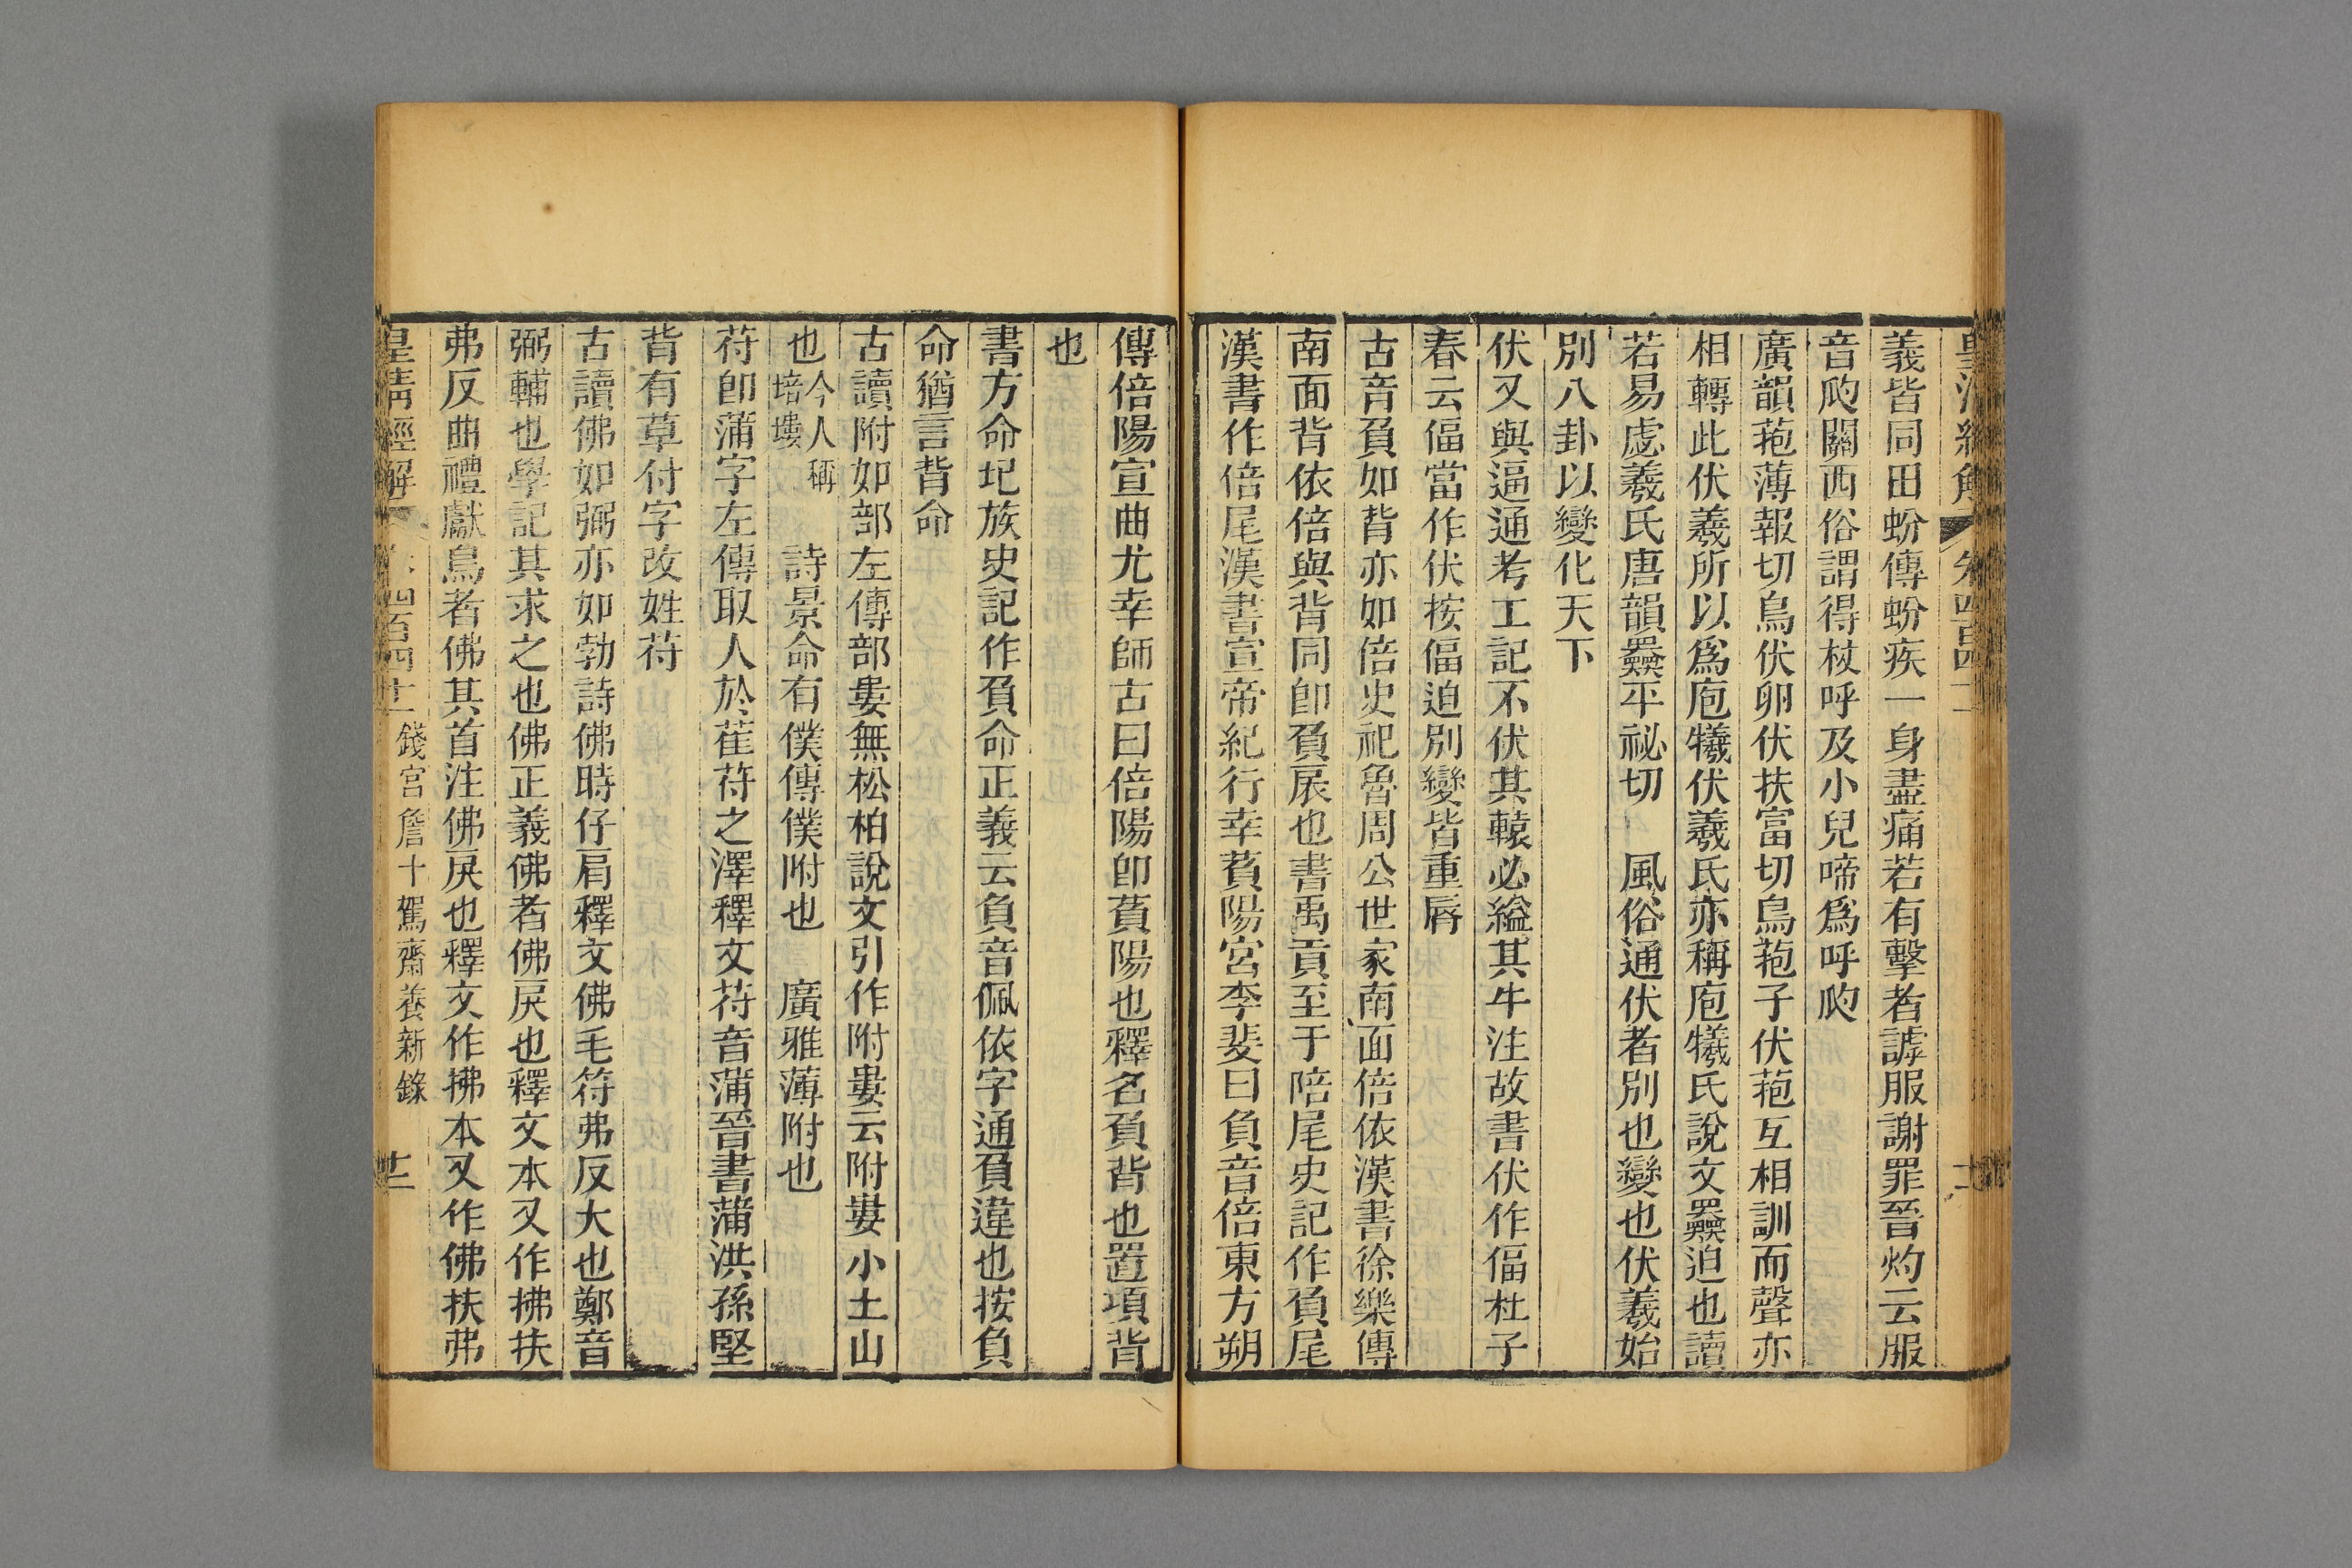 義皆同田蚡傳蚡疾一身盡痛若有擊者謼服謝罪晉灼云服
音瓝關西俗謂得杖呼及小兒啼爲呼瓝
廣韻菢薄報切鳥伏卵伏扶富切鳥菢子伏菢互相訓而聲亦
相轉此伏羲所以爲庖犧伏羲氏亦稱庖犧氏說文㒺迫也讀
若易虙羲氏唐韻平祕切　風俗通伏者別也變也伏羲始
別八卦以變化天下
伏又與逼通考工記不伏其轅必縊其牛注故書伏作偪杜子
春云偪當作伏按偪迫別變皆重脣
古音負如背亦如倍史記魯周公世家南面倍依漢書徐樂傳
南面背依倍與背同卽負扆也書禹貢至于陪尾史記作負尾
漢書作倍尾漢書宣帝紀行幸萯陽宮李斐曰負音倍東方朔
傳倍陽宣曲尤幸師古曰倍陽卽萯陽也釋名負背也置項背
也
書方命圮族史記作負命正義云負音佩依字通負違也按負
命猶言背命
古讀附如部左傳部婁無松柏說文引作附婁云附婁小土山
也今人稱培塿　詩景命有僕傳僕附也　廣雅薄附也
苻卽蒲字左傳取人於萑苻之澤釋文苻音蒲晉書蒲洪孫堅
背有草付字改姓苻
古讀佛如弼亦如勃詩佛時仔肩釋文佛毛符弗反大也鄭音
弼輔也學記其求之也佛正義佛者佛戾也釋文本又作拂扶
弗反曲禮獻鳥者佛其首注佛戾也釋文作拂本又作佛扶弗
皇清經解　四百四十二　錢宮詹十駕齋養新錄　十二